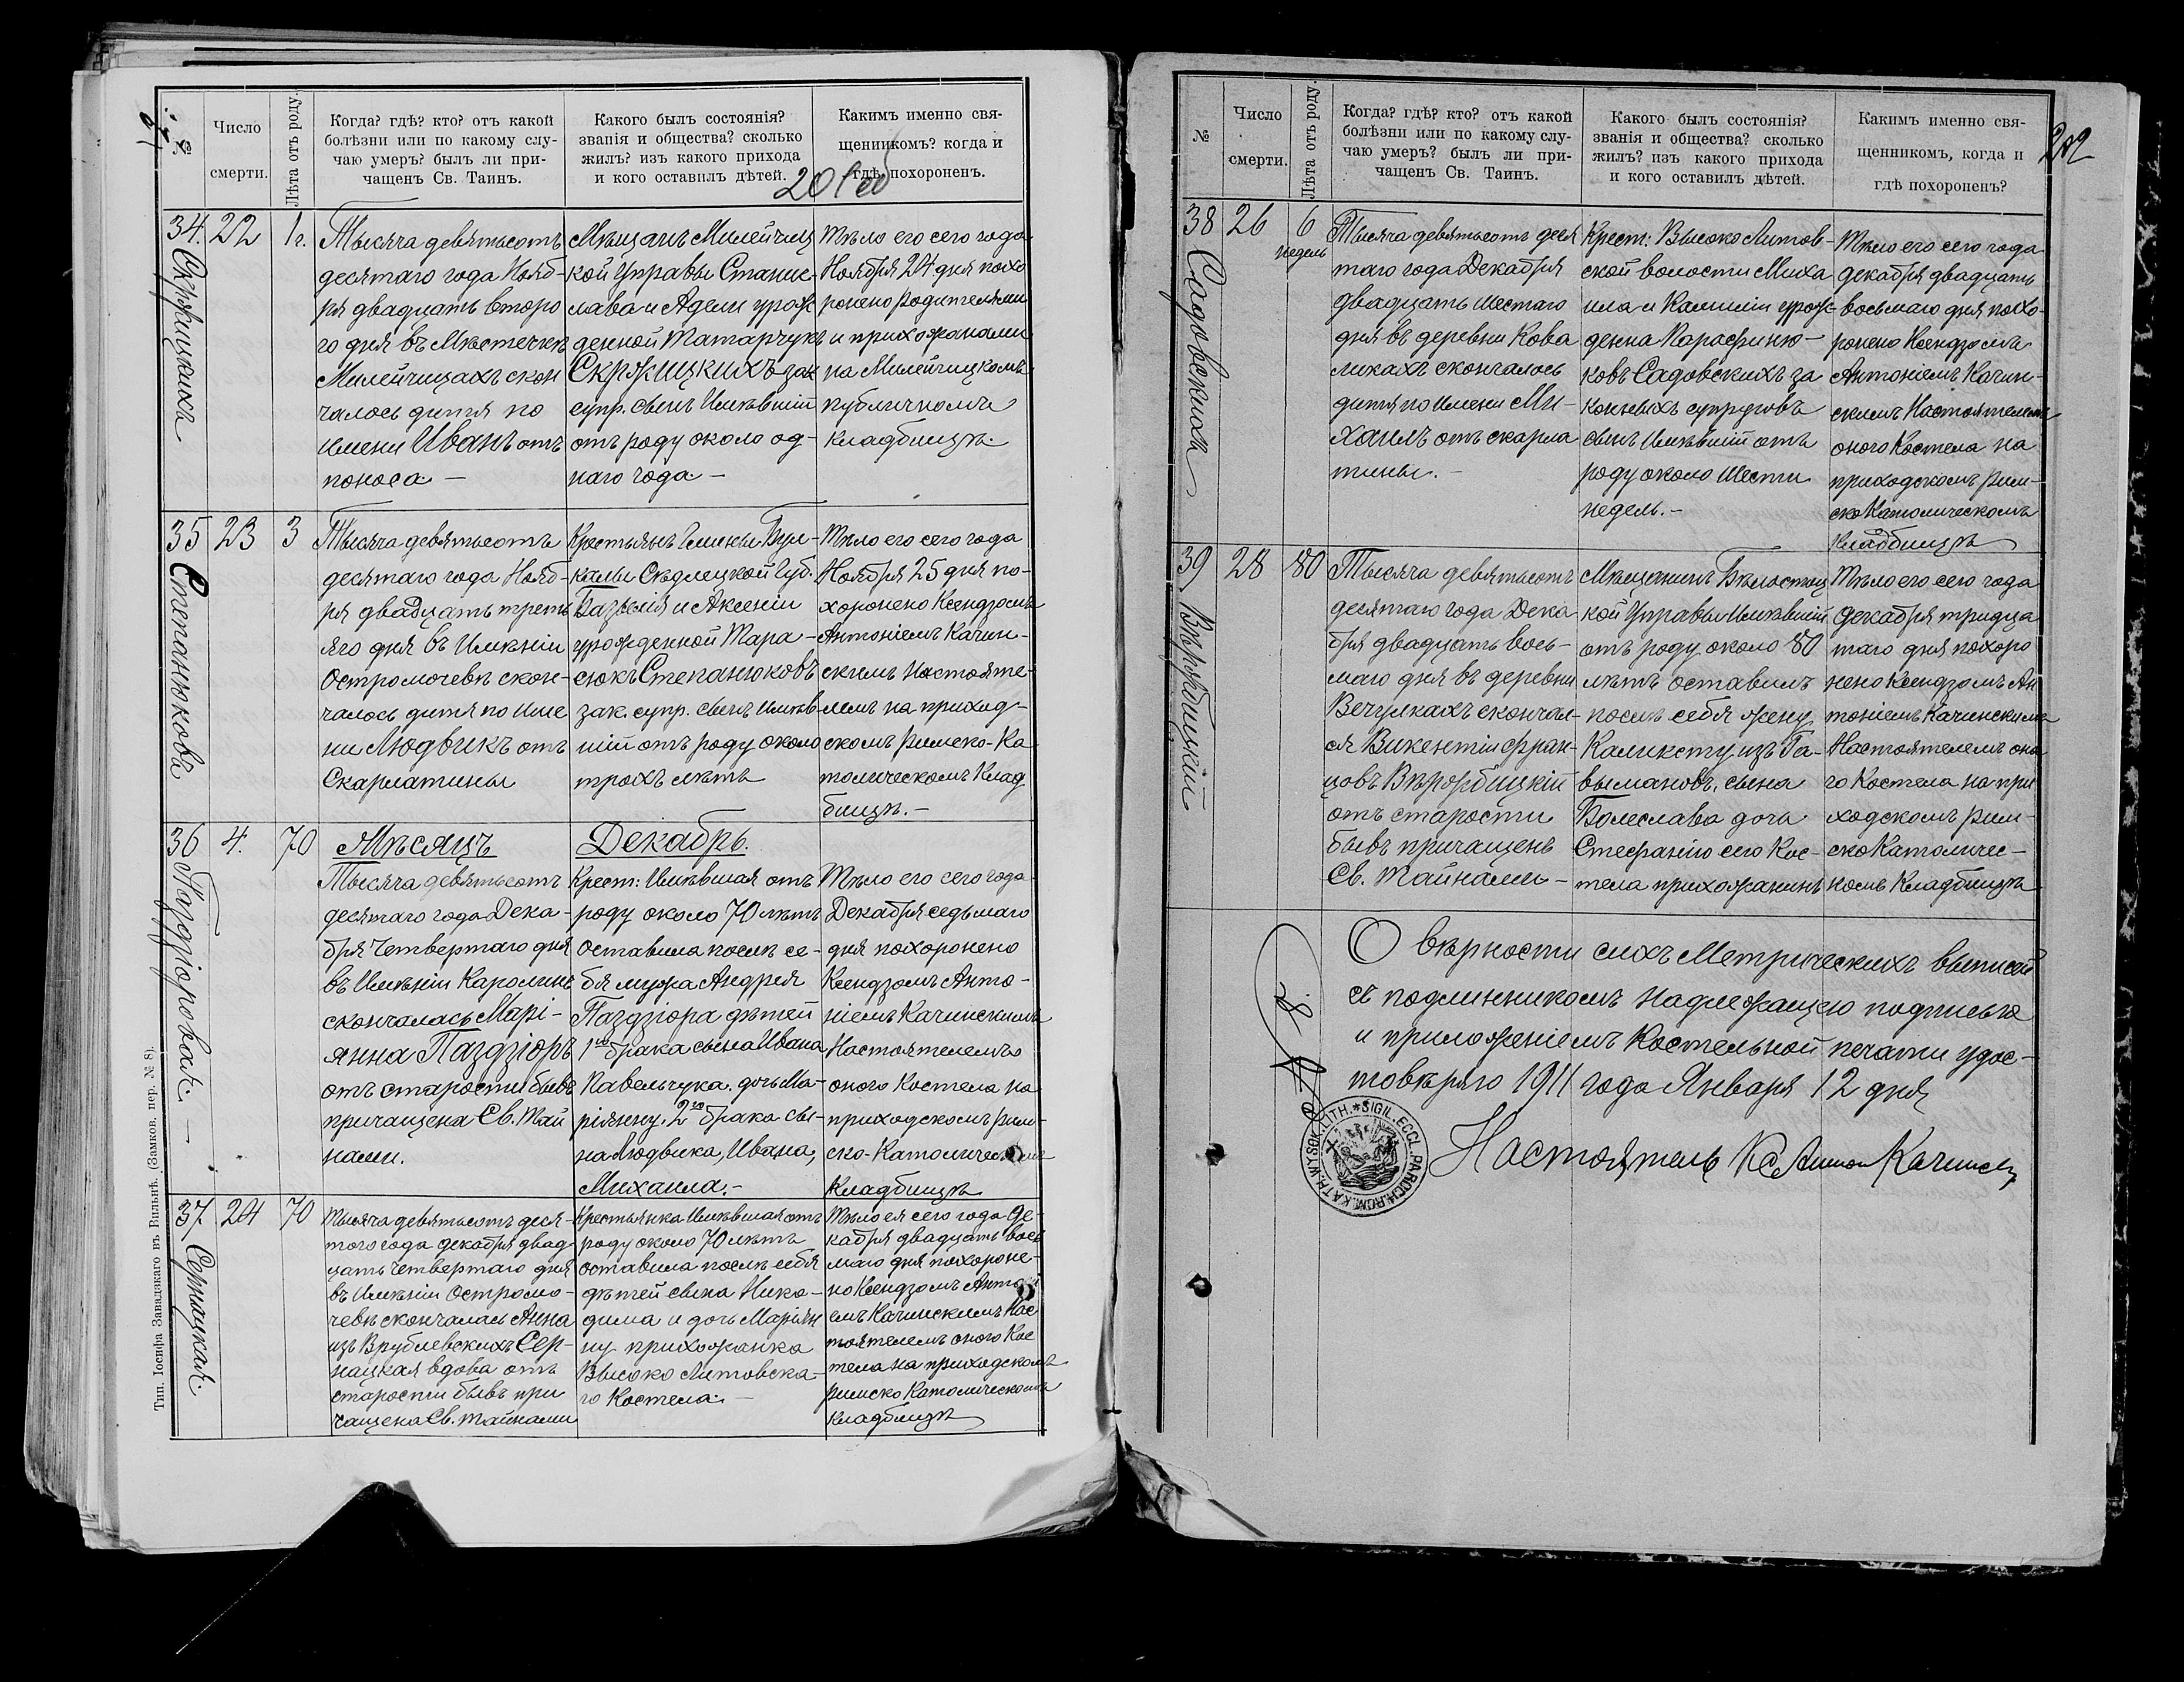 №
Число
смерти.
Лѣта отъ роду.
Когда? гдѣ? кто? отъ какой
болѣзни или по какому слу-
чаю умеръ? былъ ли при-
чащенъ Св. Таинъ.
Какого былъ состоянія?
званія и общества? сколько
жилъ? изъ какого прихода
и кого оставилъ дѣтей.
Какимъ именно свя-
щенникомъ? когда и
гдѣ похороненъ.
34.
Скржицкихъ
22
1 г.
Тысяча девятьсотъ
десятаго года Нояб-
ря двадцать второ
го дня въ Мѣстечкѣ
Милейчицахъ скон
чалось дитя по
имени Иванъ отъ
поноса —
Мѣщанъ Милейчиц
кой Управы Станис-
лава и Адели урож
денной Татарчукъ
Скржицкихъ зак
супр. сынъ Имѣвшій
отъ роду около од-
наго года —
Тѣло его сего года
Ноября 24 дня похо
ронено родителями
и прихожанами
на Милейчицкомъ
публичномъ
кладбищѣ.
35
Степанюковъ
23
3
Тысяча девятьсотъ
десятаго года Нояб-
ря двадцать треть
яго дня въ Имѣніи
Остромечевѣ скон-
чалось дитя по Име
ни Людвикъ отъ
Скарлатины
Крестьянъ Гмины
Сѣдлецкой Губ.
и Аксеніи
урожденной Тара-
сюкъ Степанюковъ
зак. супр. сынъ Имѣв-
шій отъ роду около
трохъ лѣтъ
Тѣло его сего года
Ноября 25 дня по-
хоронено Ксендзомъ
Антоніемъ Качин-
скимъ Настояте-
лемъ на приход-
скомъ Римско-Ка
толическомъ Клад
бищѣ. —
36
Паздзіоровая. —
4.
70
Мѣсяцъ
Тысяча девятьсотъ
десятаго года Дека-
бря Четвертаго дня
въ Имѣніи Каролинѣ
скончалась Марі-
янна Паздзіоръ
отъ старости бывъ
причащена Св. Тай
нами.
Декабрь.
Крест: Имѣвшая отъ
роду около 70 лѣтъ
Оставила послѣ се-
бя мужа Андрея
Паздзіора дѣтей
1го брака сына Ивана
Павельчука. дочь Ма-
ріянну. 2го брака сы-
на Людвика, Ивана,
Михаила. —
Тѣло его сего года
Декабря седьмаго
дня похоронено
Ксендзомъ Анто-
ніемъ Качинскимъ
Настоятелемъ
оного Костела на
приходскомъ рим-
ско-Католическомъ
Кладбищѣ
37.
Сернацкая.
24
70
Тысяча девятьсотъ деся-
того года декабря двад-
цать Четвертаго дня
въ Имѣніи Остроме-
чевѣ скончалась Анна
изъ Врублевскихъ Сер-
нацкая вдова отъ
старости бывъ при
чащена Св. тайнами
Крестьянка Имѣвшая отъ
роду около 70 лѣтъ
оставила послѣ себя
дѣтей сына Нико-
дима и дочь Маріян
ну прихожанка
Высоко Литовска-
го Костела. —
Тѣло ея сего года Де-
кабря двадцать вось
маго дня похороне-
но Ксендзомъ Антоні
емъ Качинскимъ Нас
тоятелемъ оного Кос
тела на приходскомъ
римско Католическомъ
Кладбищѣ
Тип. Іосифа Завадзкаго въ Вильнѣ. (Замков. пер. № 8).
202
№
Число
смерти.
Лѣта отъ роду.
Когда? гдѣ? кто? отъ какой
болѣзни или по какому слу-
чаю умеръ? былъ ли при-
чащенъ Св. Таинъ.
Какого былъ состоянія?
званія и общества? сколько
жилъ? изъ какого прихода
и кого оставилъ дѣтей.
Какимъ именно свя-
щенникомъ, когда и
гдѣ похороненъ?
38
Садовскихъ
26
6
недель
Тысяча девятьсотъ деся
таго года Декабря
двадцать шестаго
дня въ деревни Кова
ликахъ скончалось
дитя по Имени Ми-
хаилъ отъ скарла
тины. —
Крест: Высоко Литов-
ской волости Миха
ила и Камиліи урож-
денна Парафиню-
ковъ Садовскихъ за
конныхъ супруговъ
сынъ Имѣвшій отъ
роду около Шести
недель. —
Тѣло его сего года
декабря двадцать
восьмаго дня похо-
ронено Ксендзомъ
Антоніемъ Качин-
скимъ Настоятелемъ
оного Костела на
приходскомъ Рим-
ско Католическомъ
Кладбищѣ
39
Вѣржбицкій
28
80
Тысяча девятьсотъ
десятаго года Дека
бря двадцать вось-
маго дня въ деревни
Вечулкахъ скончал-
ся Викентій Фран-
цовъ Вѣржбицкій
отъ старости
бывъ причащенъ
Св. Тайнами —
Мѣщанинъ Бѣлосток
кой Управы Имѣвшій
отъ роду около 80
лѣтъ оставилъ
послѣ себя жену
Каликсту изъ Га-
вымановъ, сына
Болеслава дочь
Стефанію сего Кос-
тела прихожанинъ
Тѣло его сего года
декабря тридца
таго дня похоро
нено Ксендзомъ Ан
тоніемъ Качинскимъ
Настоятелемъ она
го Костела на при
ходскомъ рим-
ско Католичес-
комъ Кладбищѣ
О вѣрности сихъ Метрическихъ выписей
съ подлинникомъ надлежащею подписью
и приложеніемъ Костельной печати удос-
товѣряю 1911 года Января 12 дня
Настоятель Кс Антон Качинск
SIGIL. ECCL. PAROCH. ROM. KATH. WYSOK. LITH.